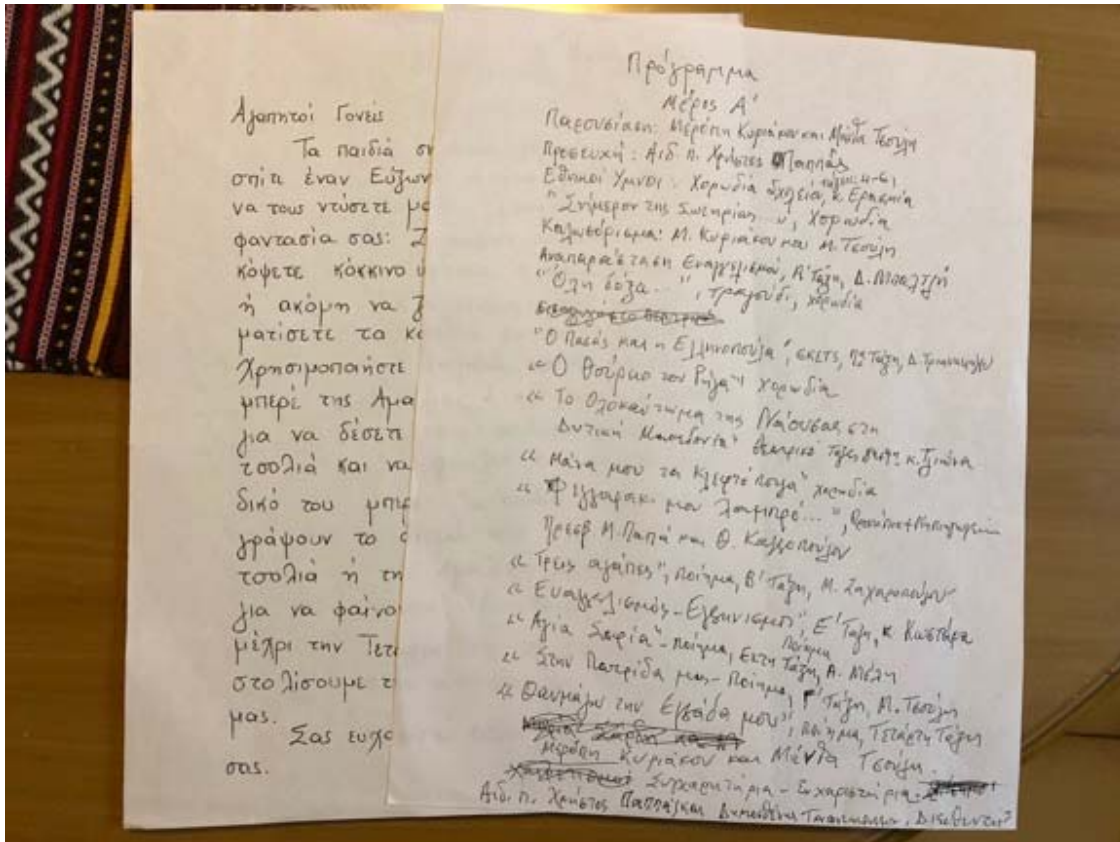 Αγαπητοί Γονείς
Τα παιδιά
σπίτι έναν Εύζων
να τους ντύσετε
φαντασία σας:
κόψετε κόκκινο
ή ακόμη να
ματίσετε τα
Χρησιμοποιήστε
μπερέ της
για να δέσετε
τσολιά και να
δικό του
γράψουν το
τσολιά ή τη
για να φαίνο
μέχρι την
στολίσουμε τ
μας.
Σας ευχα
σας.
Πρόγραμμα
Μέρος Α'
Παρουσίαση: Μερόπη Κυριάκου και Μάντα Τσούλη
Προσευχή: Αιδ. π. Χρήστος Παππάς
Εθνικοί Ύμνοι: Χορωδία
"Σήμερον της Σωτηρίας", Χορωδία
Καλωσόρισμα: Μ. Κυριάκου και Μ. Τσούλη
Αναπαράσταση Ευαγγελισμού, Α' Τάξη, Δ.
"Όλη δόξα...", τραγούδι, χορωδία
"Ο Πασάς και η Ελληνοπούλα", σκετς, Τάξη, Δ.
"Ο θούριο του Ρήγα" χορωδία
"Το Ολοκαύτωμα της Νάουσας στη
Δυτική Μακεδονία" θεατρικό
"Μάνα μου τα κλεφτόπουλα", χορωδία
"Φεγγαράκι μου λαμπρό...",
Πρεσβ Μ. Παπά και Θ.
"Τρεις αγάπες", ποίημα, Β' Τάξη, Μ. Ζαχαροπούλου
"Ευαγγελισμός - Ελληνισμός" ποίημα Ε' Τάξη, κ Κωστάρα
"Αγία Σοφία" - ποίημα, Έκτη Τάξη, Α. Μέλη
"Στην Πατρίδα μας - Ποίημα, Γ' Τάξη, Μ. Τσούλη
"Θαυμάζω την Ελλάδα μου", ποίημα, Τετάρτη Τάξη
Μερόπη Κυριάκου και Μάντα Τσούλη
Συγχαρητήρια - Ευχαριστήρια
Αιδ. π. Χρήστος Παππάς και Δημοσθένης